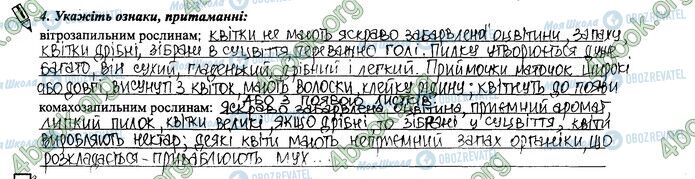 4. Укажіть ознаки, притаманні:
вітрозапильним рослинам: квітки не мають яскраво забарвленої оцвітини, запаху
квітки дрібні, зібрані в суцвіття переважно голі. Пилку утворюється дуже
багато, він сухий, гладенький, дрібний і легкий. Приймочки маточок широкі
або довгі висунуті з квіток, мають волоски, клейку рідину; квітнуть до появи
або з появою листків;
комахозапильним рослинам: яскраво забарвлена оцвітина, приємний аромат
липкий пилок, квітки великі, якщо дрібні то зібрані у суцвіття, квіти
виробляють нектар; деякі квіти мають неприємний запах органіки, що
розкладається - приваблюють мух...